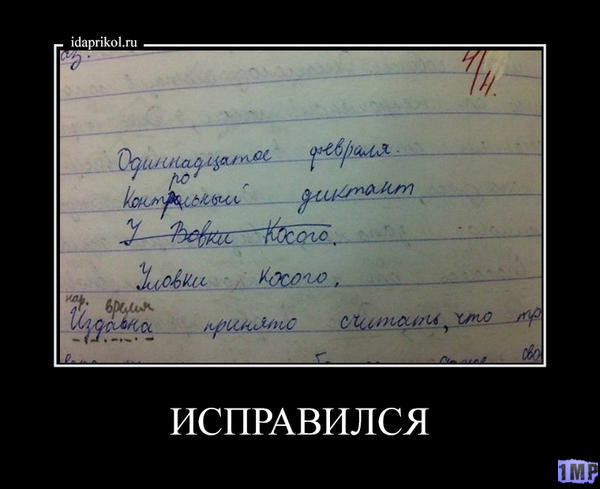 idaprikol.ru
4/4.
Одиннадцатое февраля.
Контрольный диктант
У Вовки Косого.
Уловки Косого.
нар. время
Издавна принято считать, что
ИСПРАВИЛСЯ
1MP